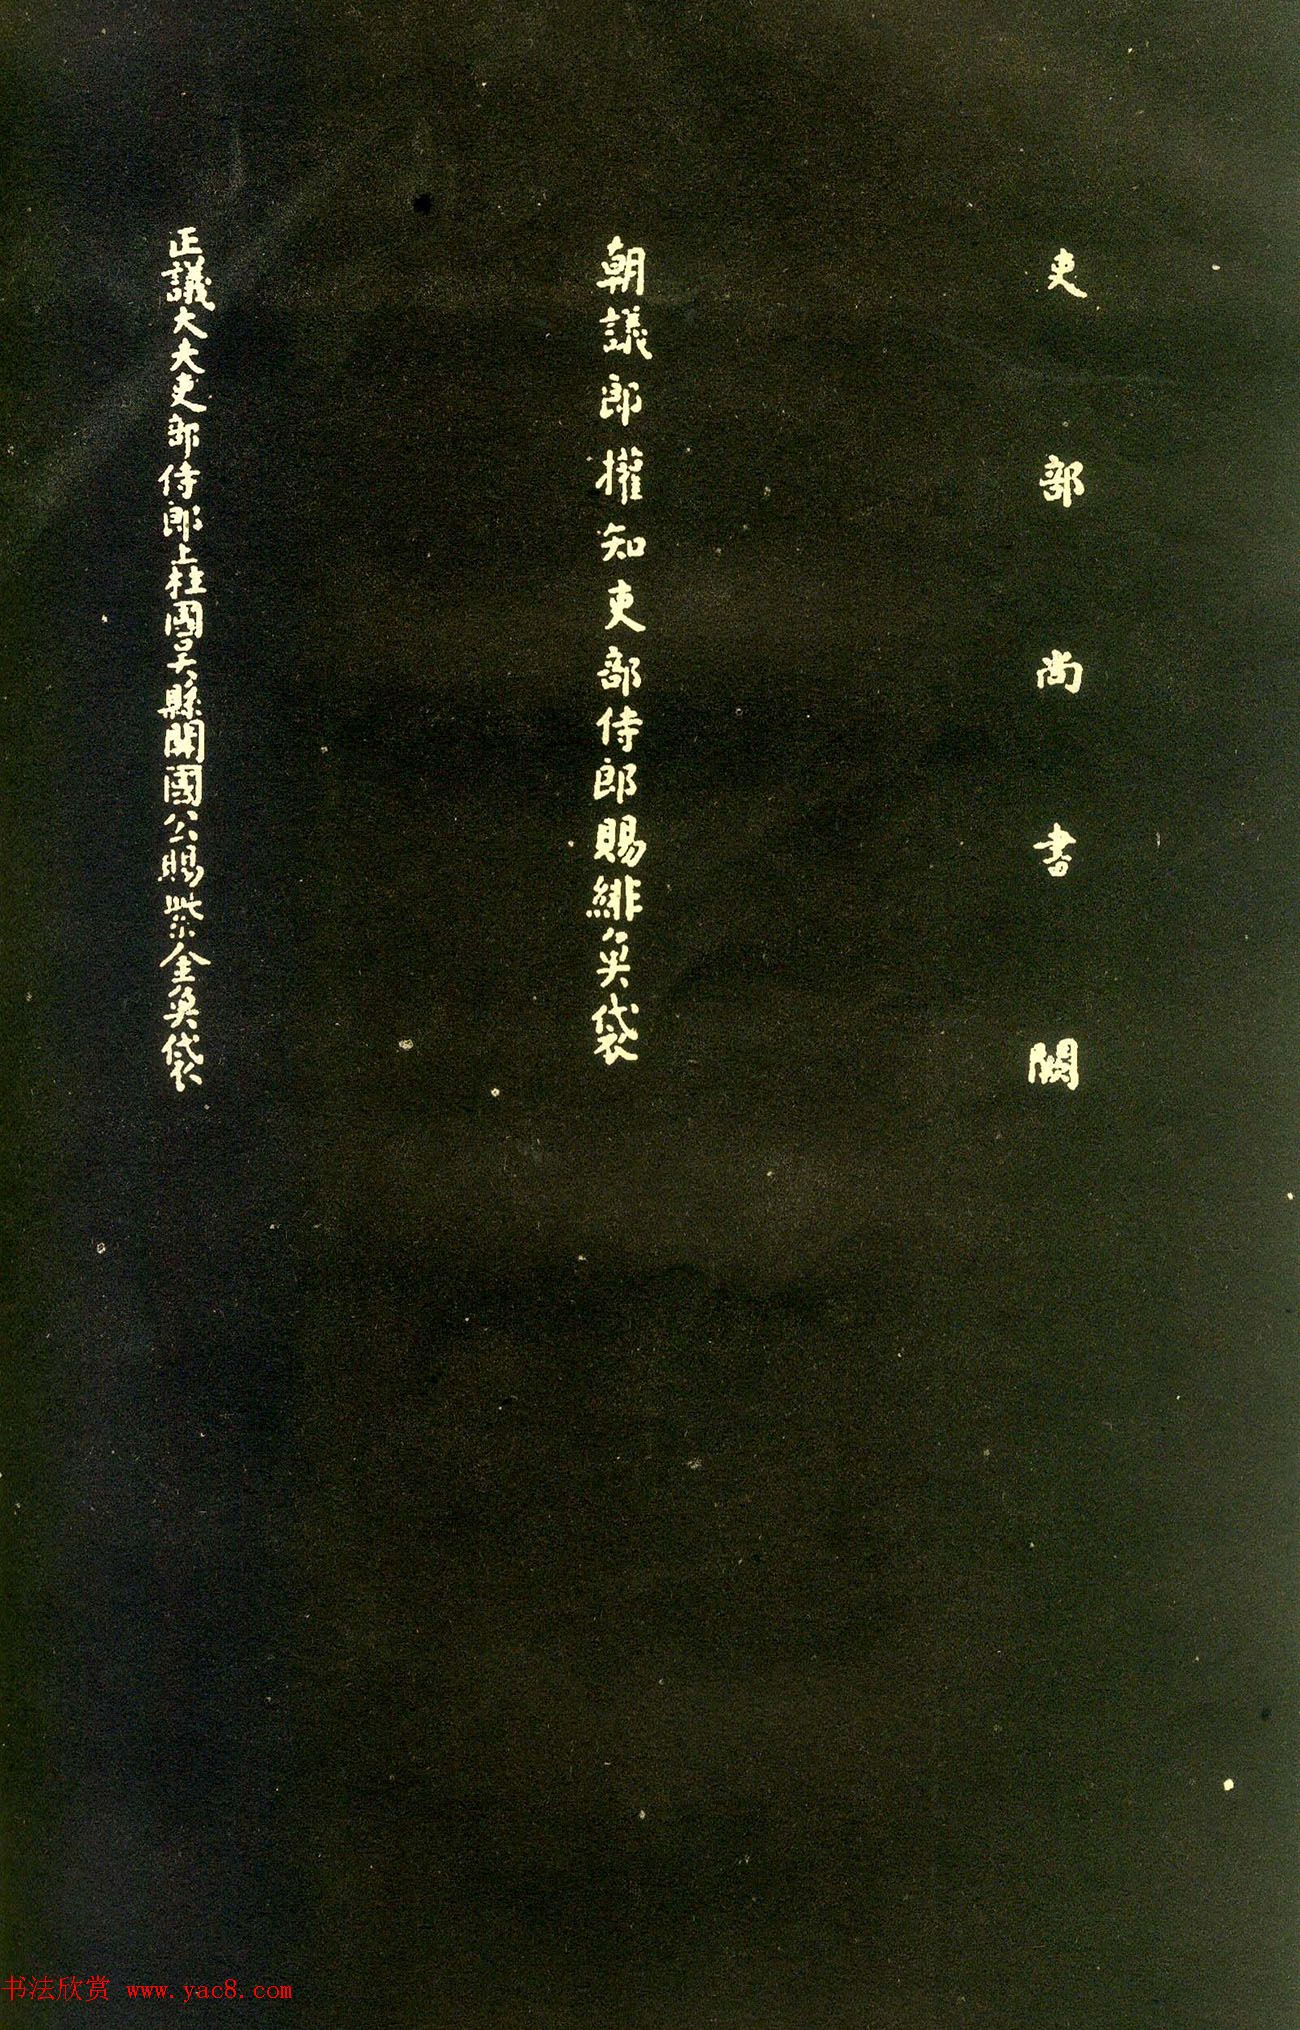 吏部尚書闕
朝議郎權知吏部侍郎賜緋魚袋
正議大夫吏部侍郎上柱國吳縣開國公賜紫金魚袋
书法欣赏 www.yac8.com